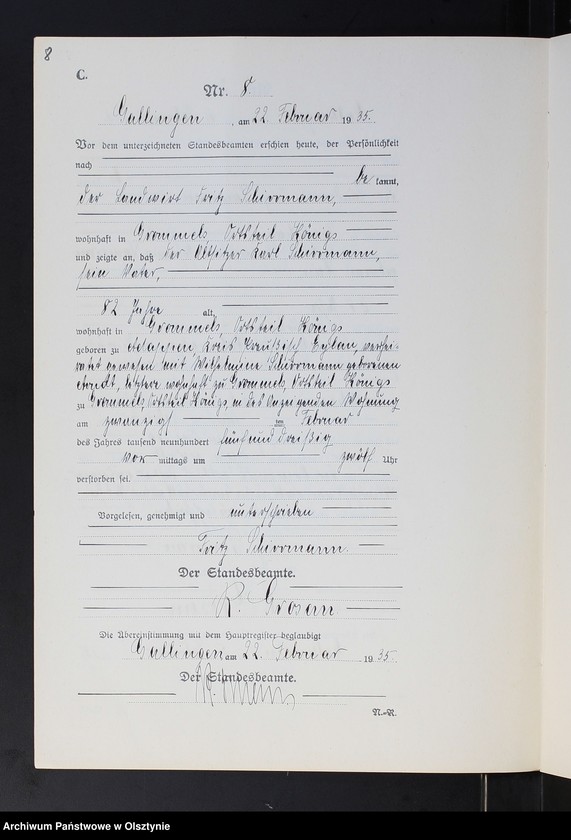 8
C.
Nr. 8.
Gallingen, am 22. Februar 1935.
Vor dem unterzeichneten Standesbeamten erschien heute, der Persönlichkeit
nach
be kannt,
der Landwirt Fritz Schirrmann,
wohnhaft in Grommels, Ortsteil Königs
und zeigte an, daß der Altsitzer Karl Schirrmann,
sein Vater,
82 Jahre alt,
wohnhaft in Grommels, Ortsteil Königs
geboren zu Kreis Preußisch Eylau, verhei-
ratet gewesen mit Wilhelmine Schirrmann geborenen
letztere wohnhaft zu Grommels, Ortsteil Königs
zu Grommels, Ortsteil Königs, in des Anzeigenden Wohnung
am zwanzigsten Februar
des Jahres tausend neunhundert fünfunddreißig
vor mittags um zwölf Uhr
verstorben sei.
Vorgelesen, genehmigt und unterschrieben
Fritz Schirrmann.
Der Standesbeamte.
R. Grosan
Die Übereinstimmung mit dem Hauptregister beglaubigt
Gallingen am 22. Februar 1935.
Der Standesbeamte.
N.-R.
Archiwum Państwowe w Olsztynie